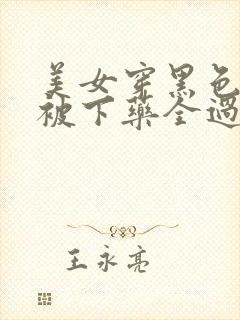 美女穿黑色
被下藥全過
王永亮